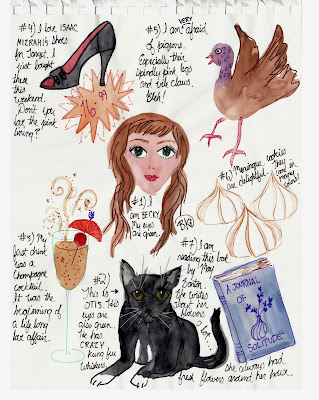 #4) I love ISAAC
MIZRAHI'S Shoes
for Target. I
just bought
these this
weekend.
Don't you
love the pink
lining?
16.99
#5) I am VERY afraid
of pigeons.
Especially their
spindly pink legs
and tele claws.
Bleh!
#6) Meringue cookies
are delightful. They
come in
many
colors!
#1) I
am BECKY.
My eyes
are green.
#3) My
first drink
was a
Champagne
cocktail.
It was the
beginning of
a life long
love affair.
#2)
This is
OTIS. His
eyes are
also green.
He has
CRAZY
kung fu
whiskers.
#7) I am
reading this book
by May
Sarton.
She writes
about her
flowers
a lot.
She always had
fresh flowers around her house.
A JOURNAL
OF
SOLITUDE